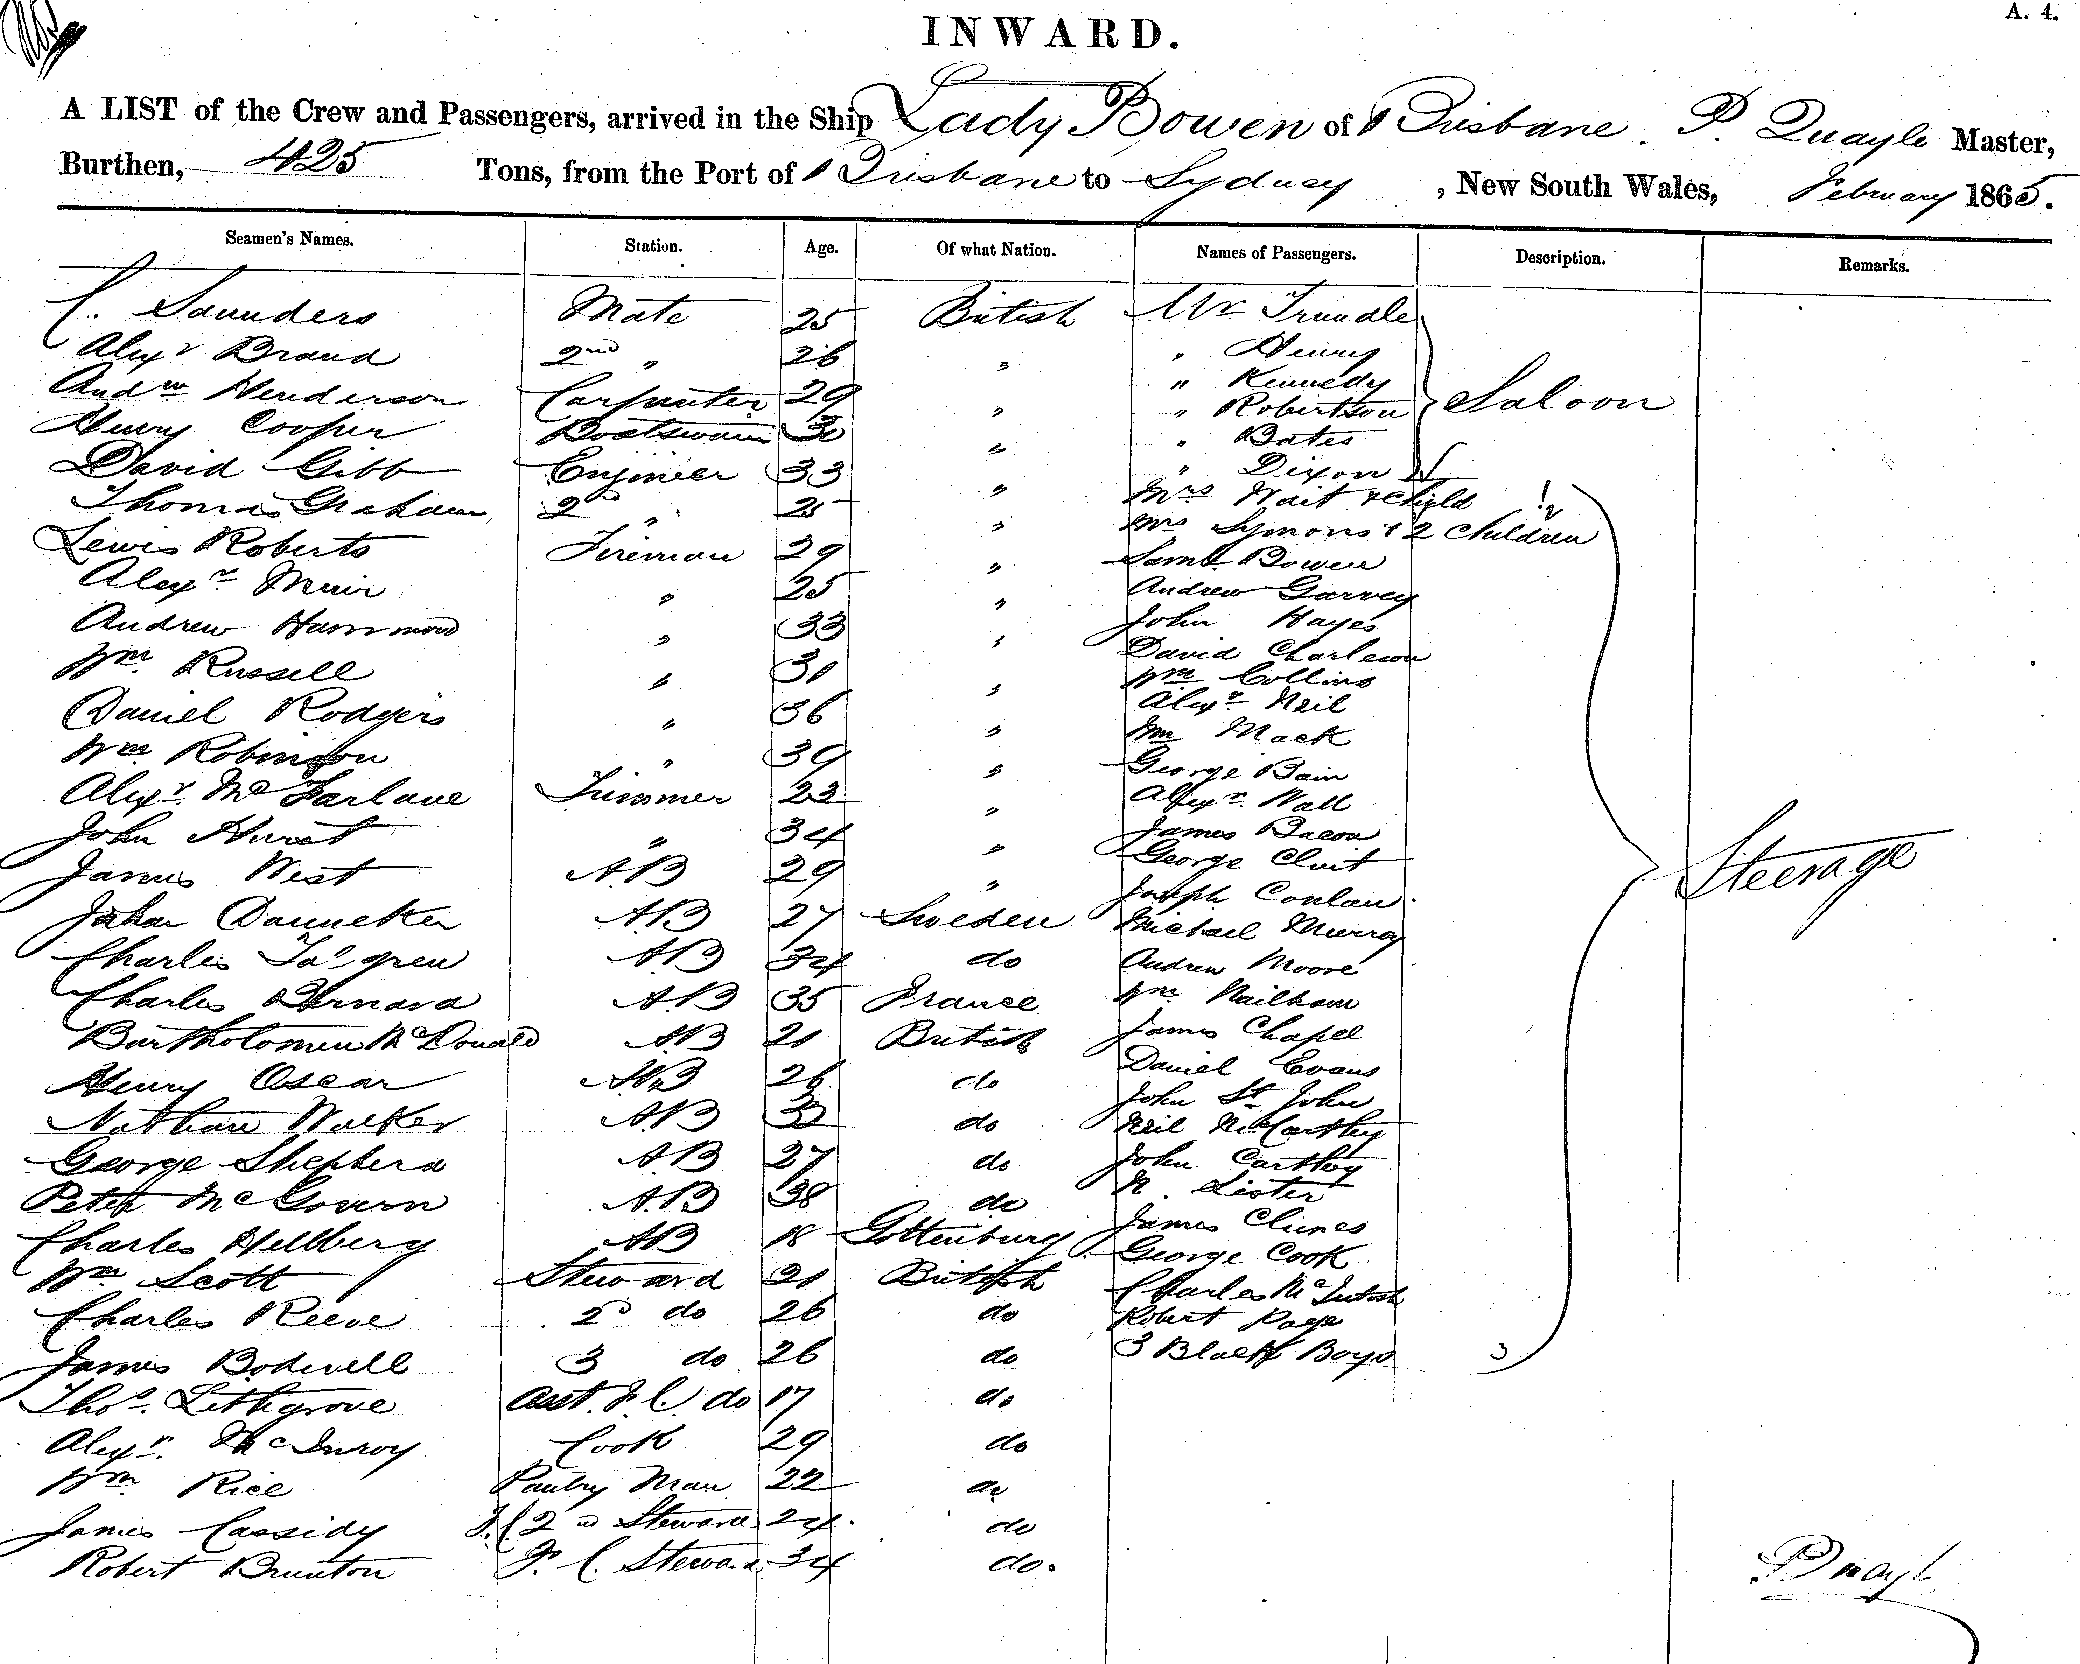 A. 4.
INWARD.
A LIST of the Crew and Passengers, arrived in the Ship Lady Bowen of Brisbane. P. Quayle Master,
Burthen, 425 Tons, from the Port of Brisbane to Sydney, New South Wales, February 1865.
Seamen's Names. Station. Age. Of what Nation. Names of Passengers. Description. Remarks.
C. Saunders Mate 25 British Mr Trundle
Alexr Brand 2nd " 26 " " Henry
Andw Henderson Carpenter 29 " " Kennedy
" Robertson Saloon
Henry Cooper Boatswain 30 " " Bates
David Gibb Engineer 33 " " Dixon
Thomas Graham 2d " 25 " Mrs Wait & Child
Mrs Symons & 2 Children
Lewis Roberts Fireman 29 " Saml Bowen
Alexr Muir " 25 " Andrew Garvey
Andrew Hammond " 33 " John Hayes
David Charleson
Wm Russell " 30 " Wm Collins
Daniel Rodgers " 36 " Alexr Neil
Wm Mack
Wm Robinson " 39 " George Bain
Alexr McFarlane Trimmer 23 " Alexr Wall
John Hurst " 34 " James Bacon
George Cluit
James West A.B 29 " Joseph Conlan
Johan Danneker A.B 27 Sweden Michael Murray
Steerage
Charles Talgren A.B 34 do Andrew Moore
Charles Bernard A.B 35 France Wm
Bartholomew McDonald A.B 21 British James Chapel
Daniel Evans
Henry Oscar A.B 26 do John St John
Nathan Walker A.B 33 do Neil McCarthy
George Shepherd A.B 27 do John Carthy
Peter McGovern A.B 38 do N. Lister
James Clunes
Charles Hellberg A.B 18 Gottenburg George Cook
Wm Scott Steward 31 British Charles McIntosh
Charles Reeve 2d do 26 do Robert Page
James Bodwell 3 do 26 do 3 Black Boys 3
Thos. Lethgrove Asst. F.C. do 17 do
Alexr. McInroy Cook 29 do
Wm Rice Pantry Man 22 do
James Cassidy F.C 2d Steward 24 do
Robert Brunton F.C. Steward 34 do.
P Quayle